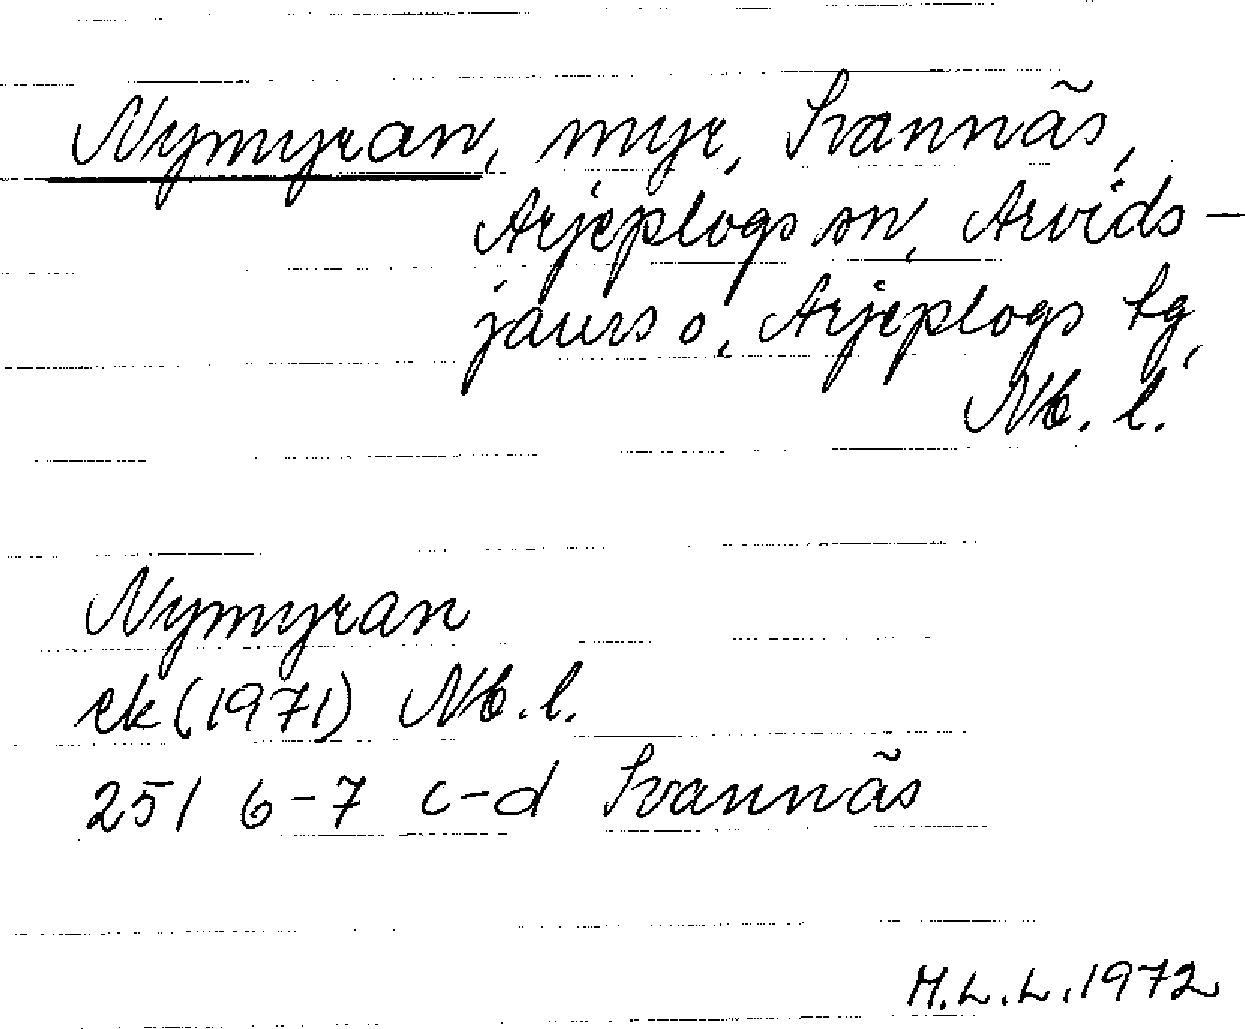 Nymyran, myr, Svannäs,
Arjeplogs sn, Arvids-
jaurs o, Arjeplogs tg,
Nb. l.
Nymyran
ek (1971) Nb. l.
25I 6-7 c-d Svannäs
H.L.L. 1972